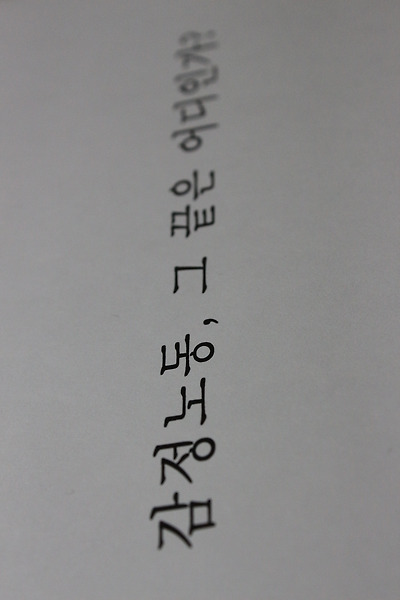 감정노동, 그 끝은 어디인가?